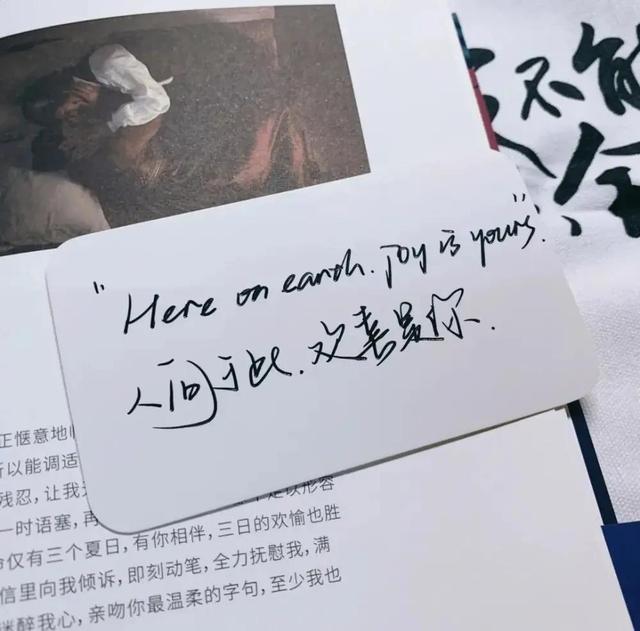 不能
"Here on earth. Joy is yours".
人间于此.欢喜是你.
正惬意地
所以能调适
残忍，让我
一时语塞，再 足以形容
命仅有三个夏日，有你相伴，三日的欢愉也胜
信里向我倾诉，即刻动笔，全力抚慰我，满
迷醉我心，亲吻你最温柔的字句，至少我也